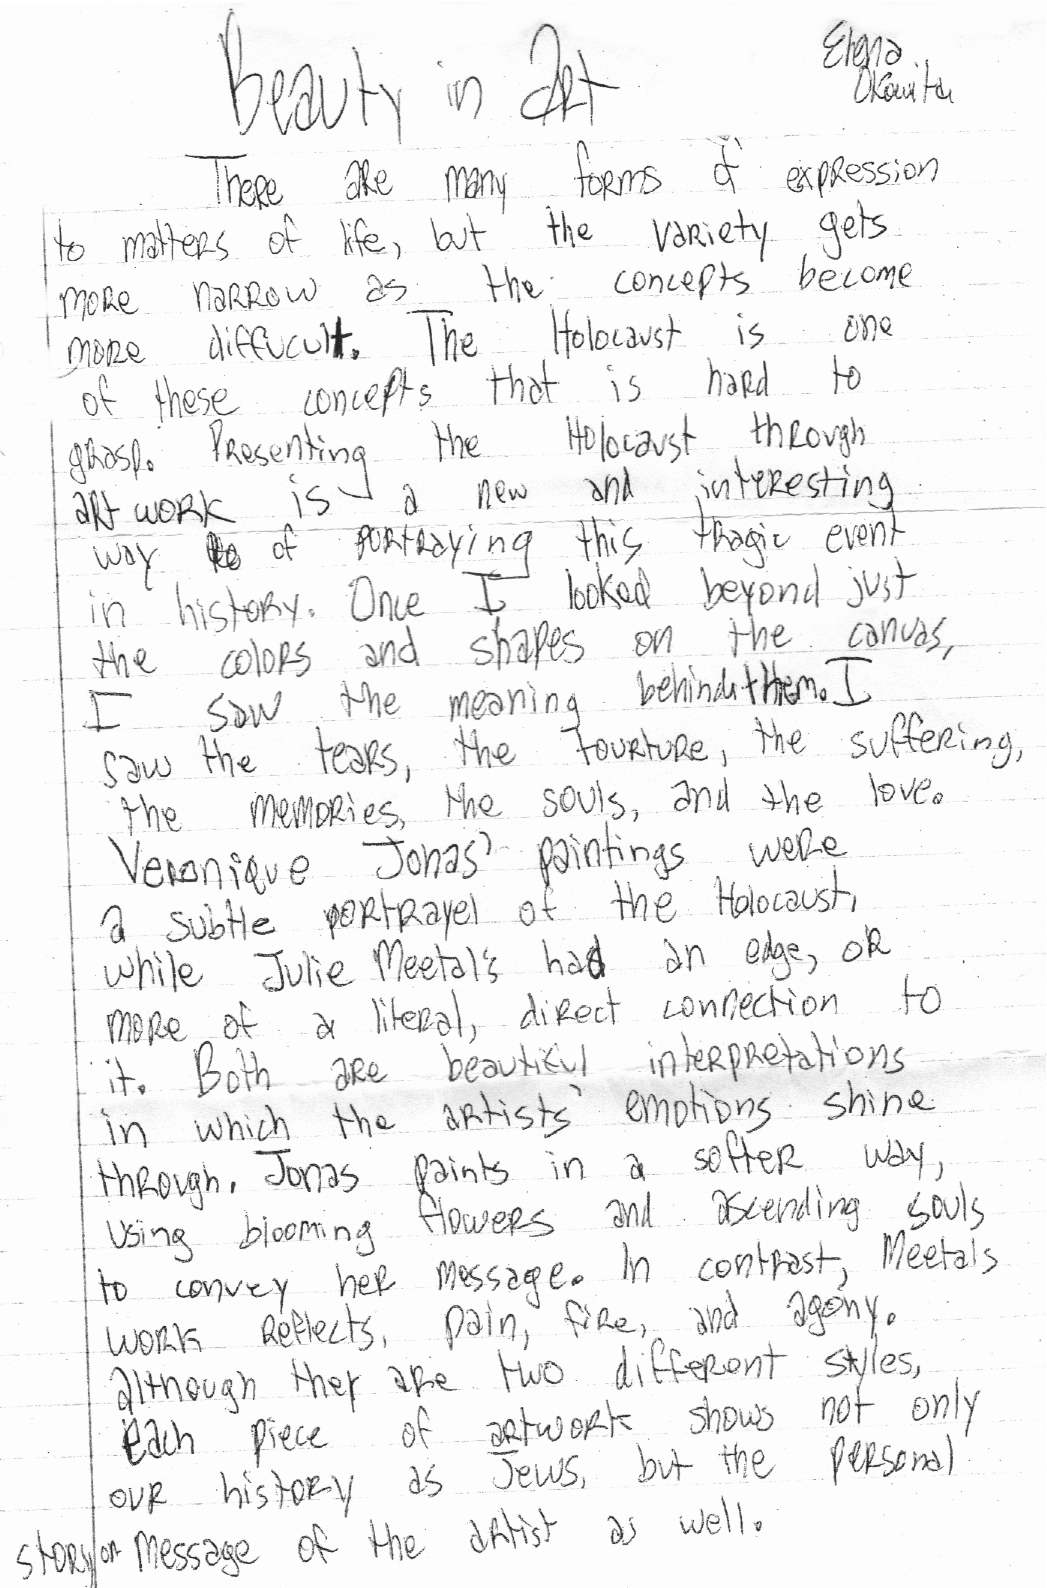 Beauty in Art
Elena
There are many forms of expression
to matters of life, but the variety gets
more narrow as the concepts become
more diffucult. The Holocaust is one
of these concepts that is hard to
grasp. Presenting the Holocaust through
art work is a new and interesting
way of portraying this tragic event
in history. Once I looked beyond just
the colors and shapes on the canvas,
I saw the meaning behind them. I
saw the tears, the tourture, the suffering,
the memories, the souls, and the love.
Veronique Jonas' paintings were
a subtle portrayel of the Holocaust,
while Julie Meetal's had an edge, or
more of a literal, direct connection to
it. Both are beautiful interpretations
in which the artists' emotions shine
through. Jonas paints in a softer way,
using blooming flowers and ascending souls
to convey her message. In contrast, Meetals
work reflects, pain, fire, and agony.
although they are two different styles,
each piece of artwork shows not only
our history as Jews, but the personal
story or message of the artist as well.